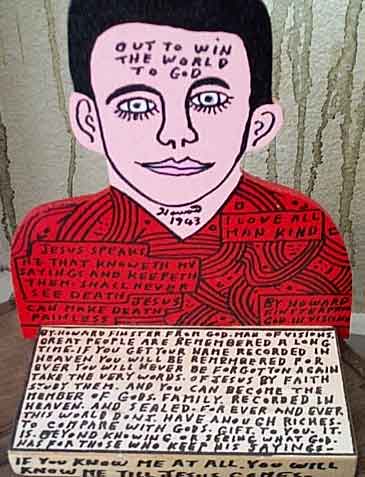 OUT TO WIN
THE WORLD
TO GOD
Howard
1943
I LOVE ALL
MAN KIND
JESUS SPEAKS
HE THAT KNOWETH MY
SAYINGS AND KEEPETH
THEM. SHALL NEVER
SEE DEATH JESUS
CAN MAKE DEATH
PAINLESS
BY HOWARD
FINSTER FROM
GOD. IN VISION
BY. HOWARD FINSTER FROM GOD. MAN OF VISIONS
GREAT PEOPLE ARE REMEMBERED A LONG
TIME. IF YOU GET YOUR NAME RECORDED IN
HEAVEN YOU WILL BE REMEMBERED FOR
EVER YOU WILL NEVER BE FORGOTTON AGAIN
TAKE THE VERY WORDS. OF JESUS BY FAITH
STUDY THEM. AND YOU CAN BECOME THE
MEMBER OF GODS. FAMILY. RECORDED IN
HEAVEN. AND SEALED. FOREVER AND EVER.
THIS WORLD DON,T HAVE ANOUGH RICHES.
TO COMPARE WITH GODS. GIFT. TO YOU. IT
IS BEYOND KNOWING. OR SEEING WHAT GOD.
HAS FOR THOSE WHO KEEP HIS SAYINGS-
IF YOU KNOW ME AT ALL. YOU WILL
KNOW ME TILL JESUS COMES.